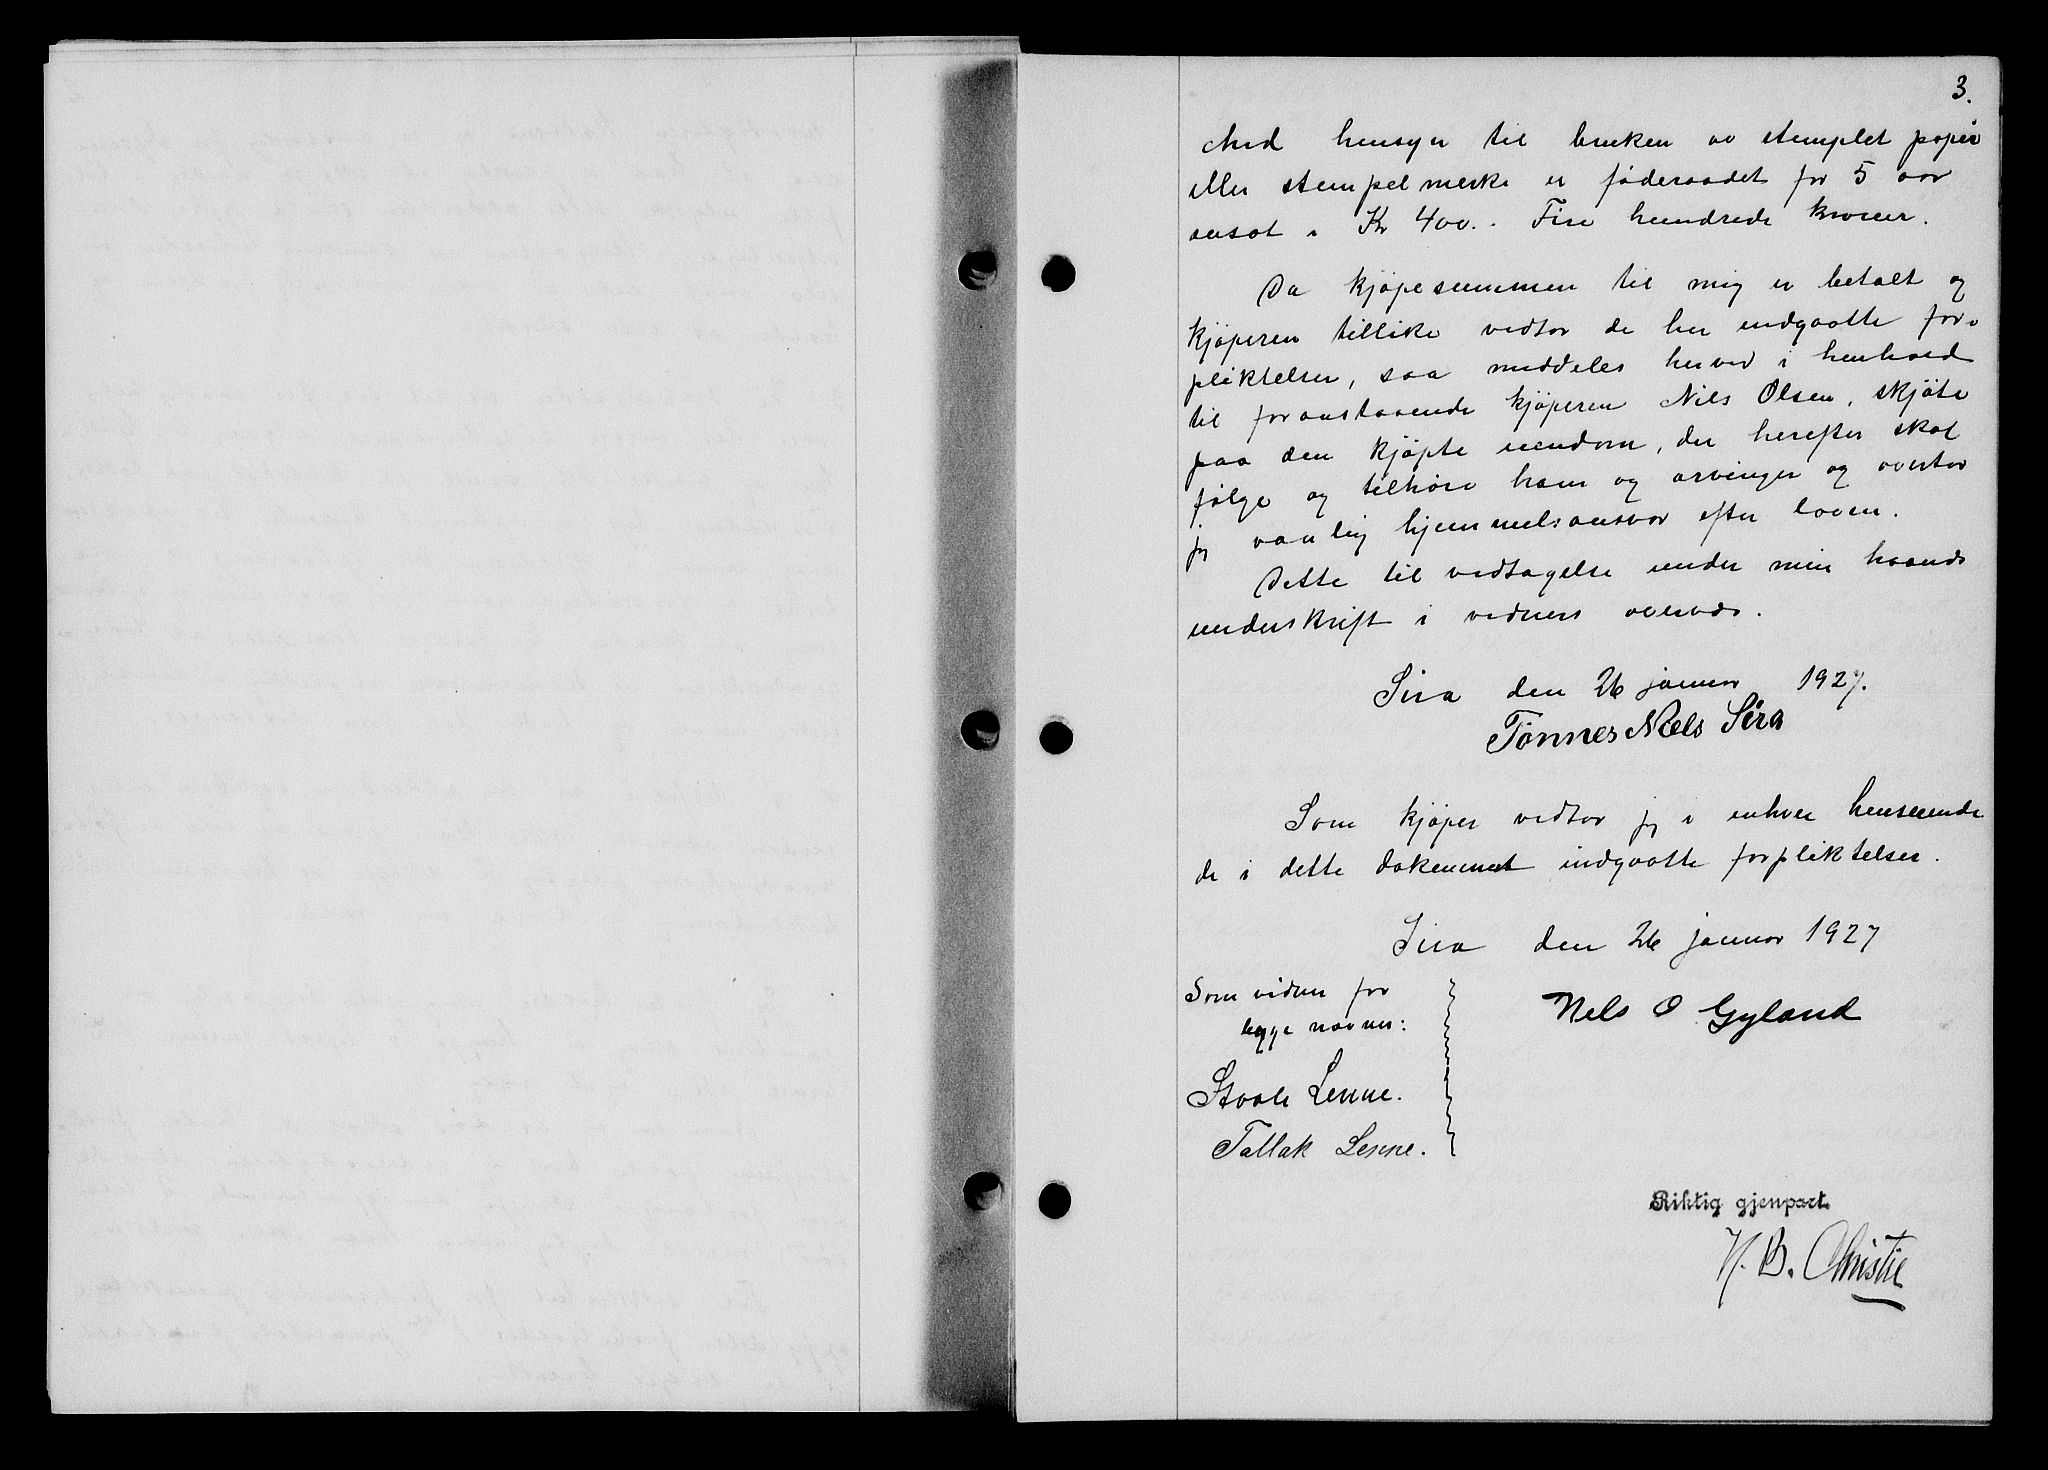 3.
Med hensyn til bruken av stemplet papir
eller stempelmerke er føderaadet for 5 aar
ansat i Kr 400.- Fire hundrede kroner.
Da kjøpesummen til mig er betalt og
kjøperen tillike vedtar de her indgaatte for-
pliktelser, saa meddeles herved i henhold
til foranstaaende kjøperen Nils Olsen, skjøte
paa den kjøpte eiendom, der herefter skal
følge og tilhøre ham og arvinger og overtar
jeg vanlig hjemmelsansvar efter loven.
Dette til vedtagelse under min haands
underskrift i vidners overvær.
Sira den 26 januar 1927.
Tønnes Niels Sira
Som kjøper vedtar jeg i enhver henseende
de i dette dokument indgaatte forpliktelser.
Sira den 26 januar 1927
Som vidner for
begge navner:
Nels O Gyland
Staale Lenne.
Tallak Lenne.
Riktig gjenpart.
H. B. Christie